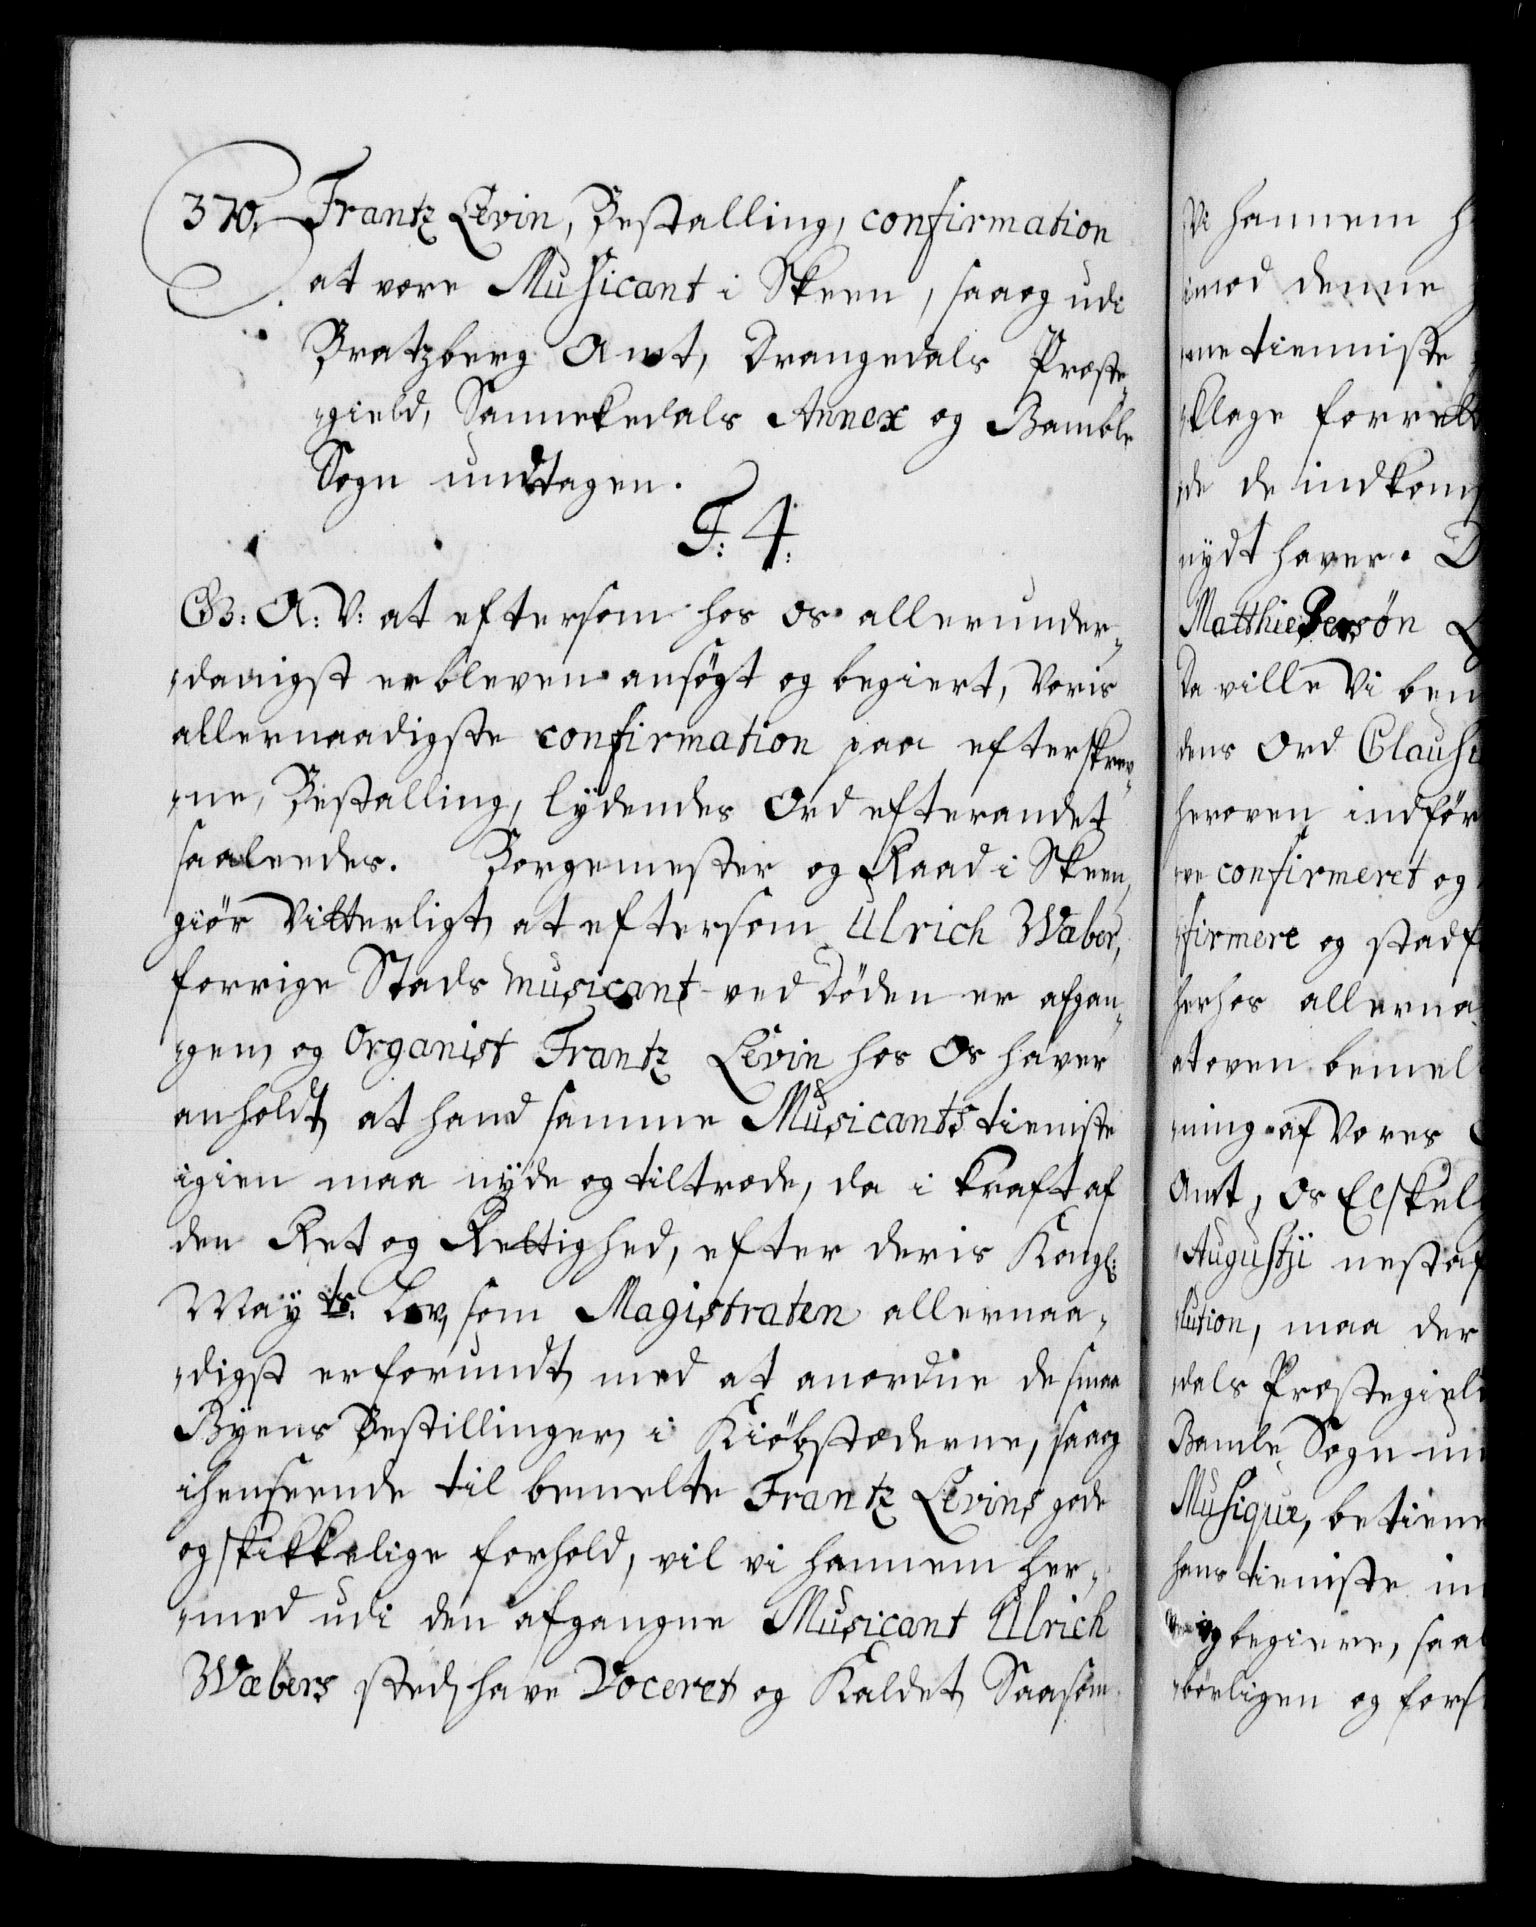 370. Frantz Levin, Bestalling, confirmation
at være Musicant i Skeen, saa og udi
Bratzberg Amt, Drangedals Præste-
gield, Sannikedals Annex og Bamble
Sogn undtagen.
F: 4.
G: A: V: at eftersom hos os allerunder-
danigst er bleven ansögt og begiert, Voris
allernaadigste confirmation paa efterskrev-
ne, Bestalling, lydendes Ord efter andet
saaleedes. Borgemester og Raad i Skeen,
giör Vitterligt, at eftersom Ulrich Wæber,
forrige Stads musicant ved Döden er afgan-
gen, og Organist Frantz Levin hos Os haver
anholdt, at hand samme Musicants tieniste
igien maa nyde og tiltræde, da i kraft af
den Ret og Rettighed, efter deris Kongl:
Mayts. Lov, som Magistraten allernaa-
digst er forundt, med at anordne de smaa
Byens Bestillinger, i Kiöbstæderne, saa og
i henseende til bemelte Frantz Levins gode
og skikkelige forhold, vil vi hannem her-
med udi den afgangne Musicant Ulrich
Wæbers sted, have Voceret, og Kaldet, Saasom
Vi hannem
imod denne
ne tienniste
klage forrett
de de indkom
nydt haver. D
Matthie Persøn
Da ville Vi
dens Ord Clausu
heroven indför
ve confirmeret og
firmere og stadf
herhos allerna
at oven bemel
ning af Vores
Amt, Os Elskel
Augustji nestaf
lution, maa der
dals Præstegield
Bamle Sogn un
Musique, betiene
hans tieniste in
og begiere, saa
börligen og fors